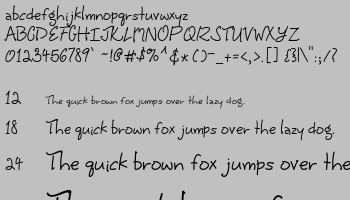 abcdefghijklmnopqrstuvwxyz
ABCDEFGHIJKLMNOPQRSTUVWXYZ
0123456789` ~!@#$%^&*()-_+=<,>.[]{}|\":;/?
12 The quick brown fox jumps over the lazy dog.
18 The quick brown fox jumps over the lazy dog.
24 The quick brown fox jumps over the